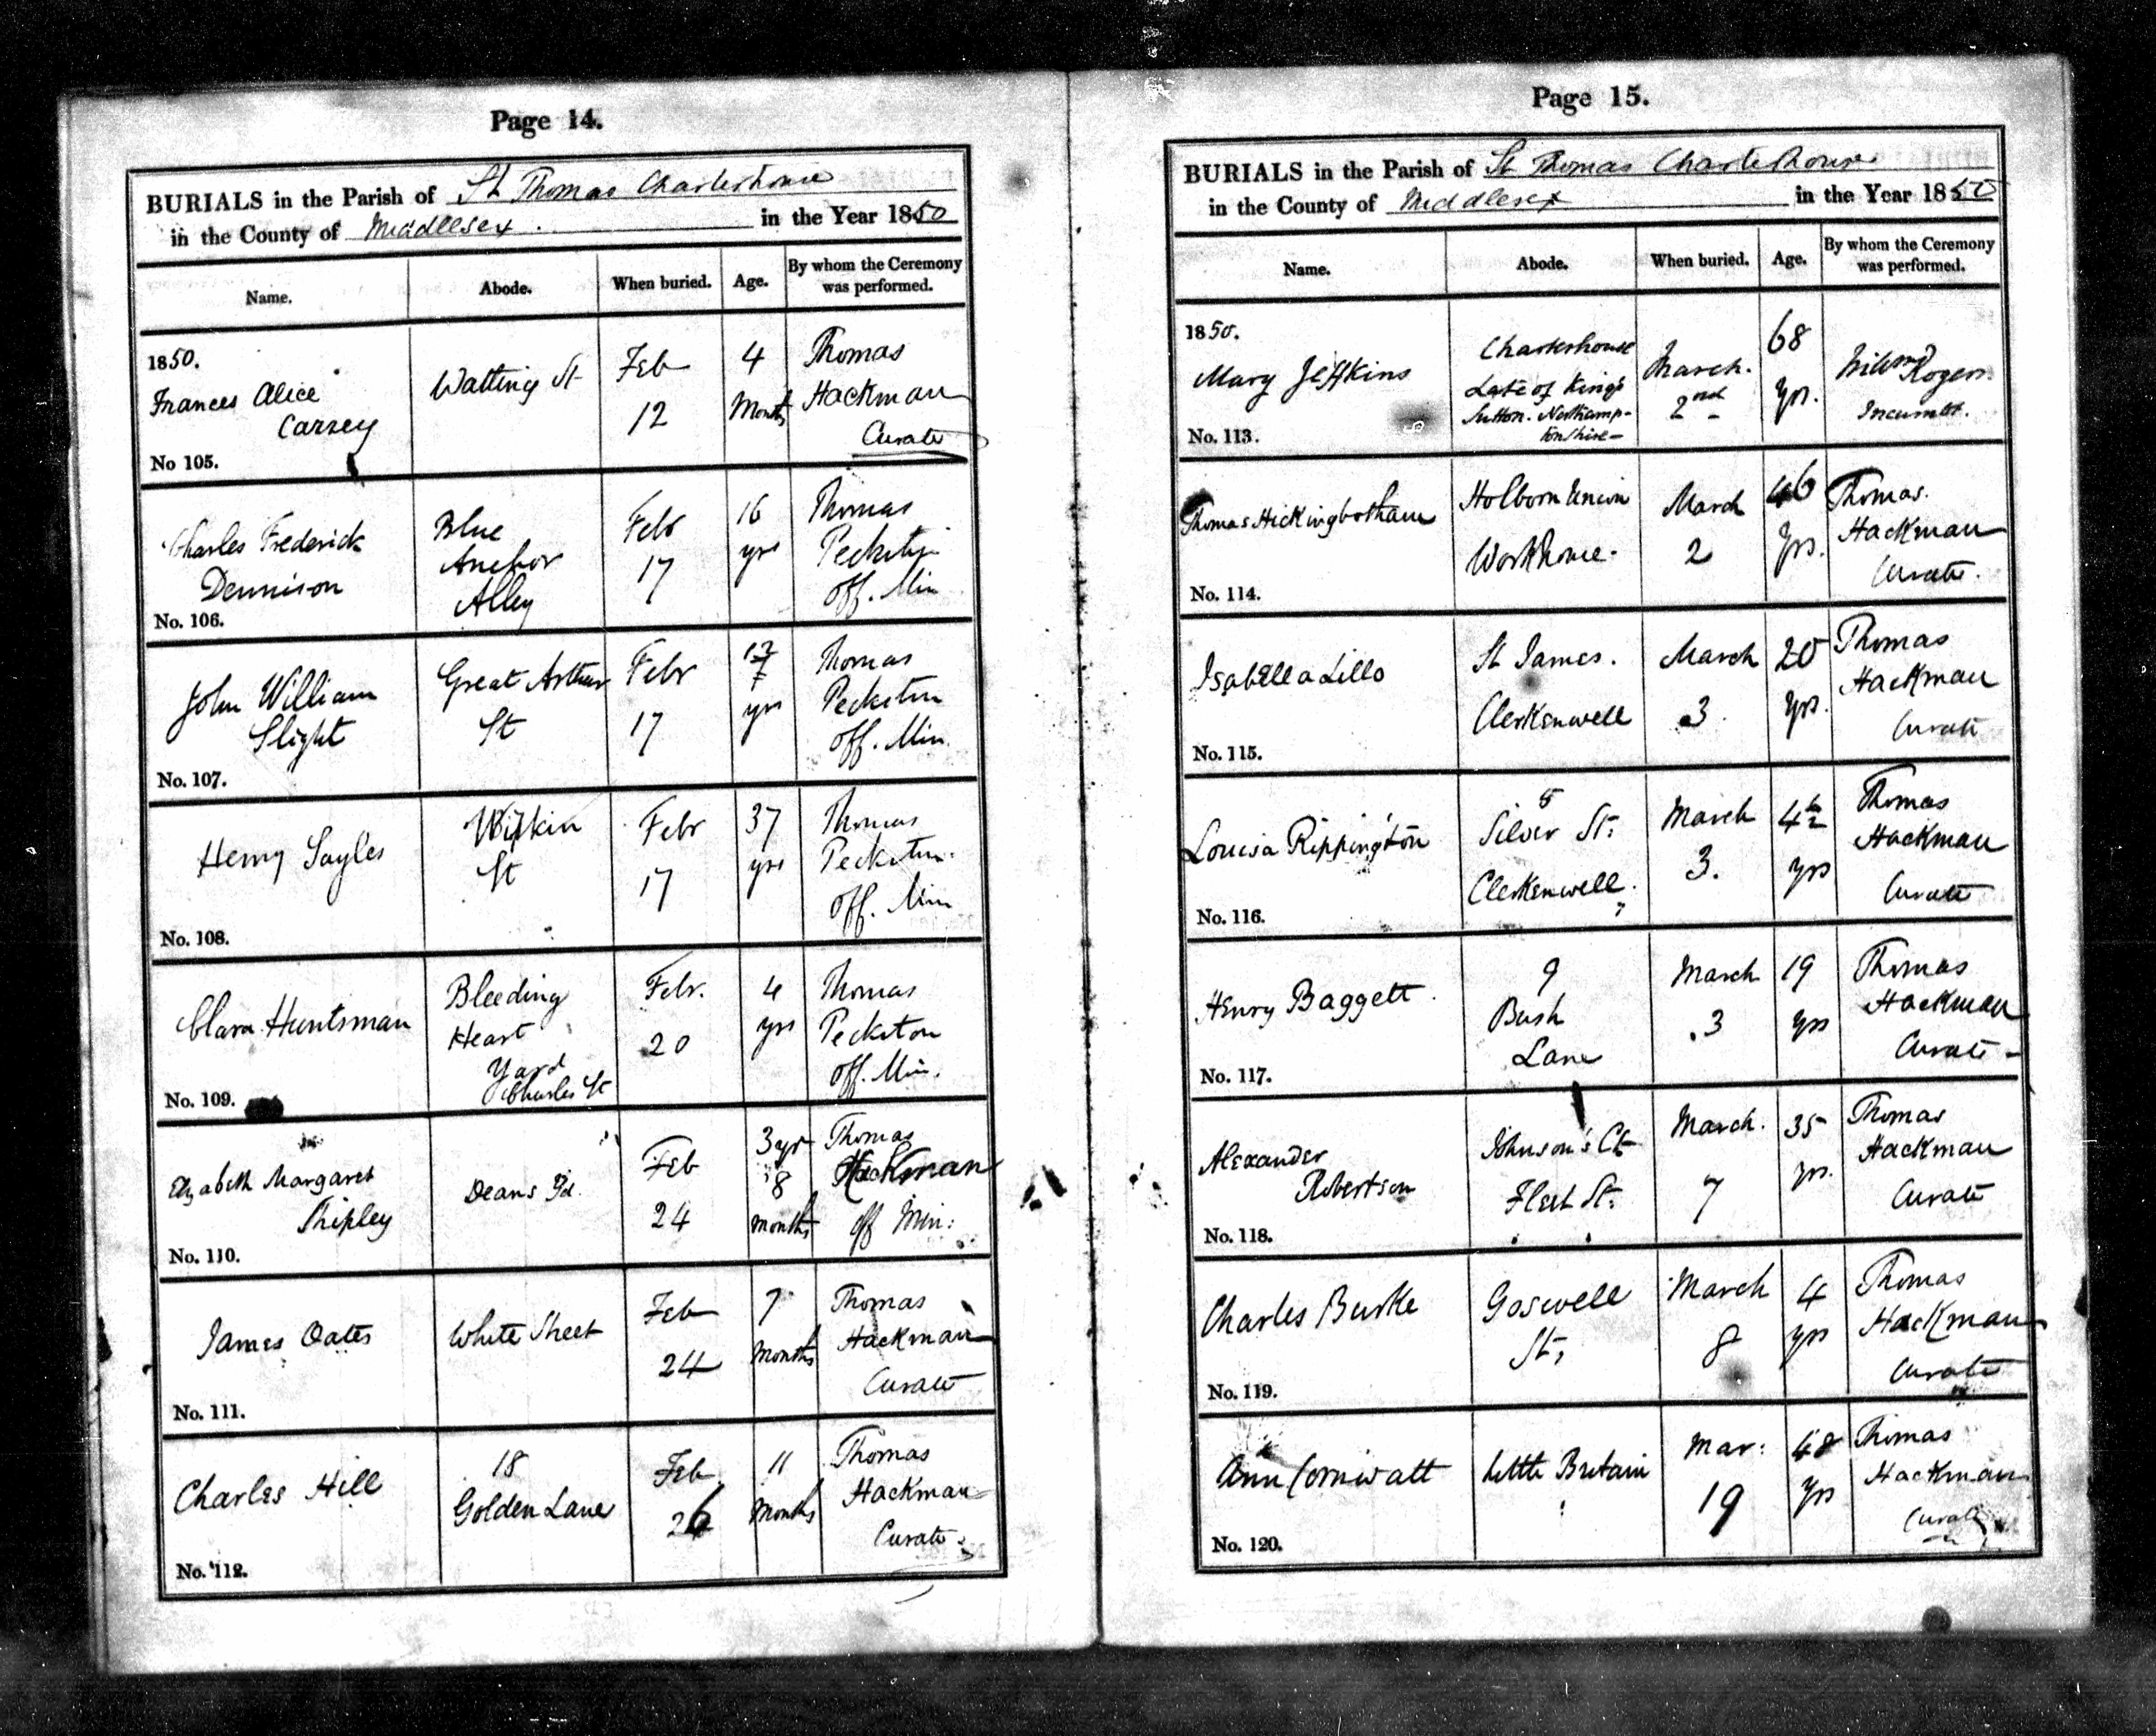 Page 14.
BURIALS in the Parish of St Thomas Charterhouse
in the County of Middlesex. in the Year 1850
Name. Abode. When buried. Age. By whom the Ceremony was performed.
1850.
Frances Alice
Carzey
No 105.
Watling St
Feb
12
4
Months
Thomas
Hackman
Curate
Charles Frederick
Dennison
No. 106.
Blue
Anchor
Alley
Feb
17
16
yrs
Thomas
Peckston
off. Min
John William
Slight
No. 107.
Great Arthur
St
Febr
17
yrs
Thomas
Peckston
off. Min.
Henry Sayles
No. 108.
St
Febr
17
37
yrs
Thomas
Peckston
off. Min
Clara Huntsman
No. 109.
Bleeding
Heart
Yard
Charles St
Febr.
20
4
yrs
Thomas
Peckston
off. Min.
Elizabeth Margaret
Shipley
No. 110.
Deans Yd.
Feb
24
3 yrs
8
months
Thomas
Hackman
off Min:
James Oates
No. 111.
White Street
Feb
24
7
Months
Thomas
Hackman
Curate
Charles Hill
No. 112.
18
Golden Lane
Feb
26
11
Months
Thomas
Hackman
Curate
Page 15.
BURIALS in the Parish of St Thomas Charterhouse
in the County of Middlesex in the Year 1850
Name. Abode. When buried. Age. By whom the Ceremony was performed.
1850.
Mary Jeffkins
No. 113.
Charterhouse
Late of King's
Sutton. Northamp-
tonshire-
March.
2nd
68
Yrs.
Willm Rogers.
Incumbt.
Thomas Hickingbotham
No. 114.
Holborn Union
Workhouse.
March
2
46
Yrs.
Thomas.
Hackman
Curate.
Isabella Lillo
No. 115.
St James.
Clerkenwell
March
3.
20
Yrs.
Thomas
Hackman
Curate
Louisa Rippington
No. 116.
5
Silver St:
Clerkenwell.
March
3.
4½
yrs
Thomas
Hackman
Curate
Henry Baggett.
No. 117.
9
Bush
Lane
March
3
19
yrs
Thomas
Hackman
Curate-
Alexander
Robertson
No. 118.
Johnson's Ct
Fleet St:
March.
7
35
yrs.
Thomas
Hackman
Curate
Charles Burke
No. 119.
Goswell
St,
March
8
4
yrs
Thomas
Hackman
Curate
Ann Cornwall
No. 120.
Little Britain
Mar:
19
48
Yrs
Thomas
Hackman
Curate